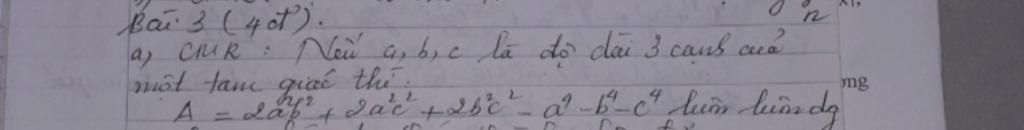 Bài 3 (4đ).
a) CMR : Nếu a, b, c là độ dài 3 cạnh của
một tam giác thì
mg
A = 2a²b² + 2a²c² + 2b²c² - a⁴ - b⁴ - c⁴ luôn luôn dg